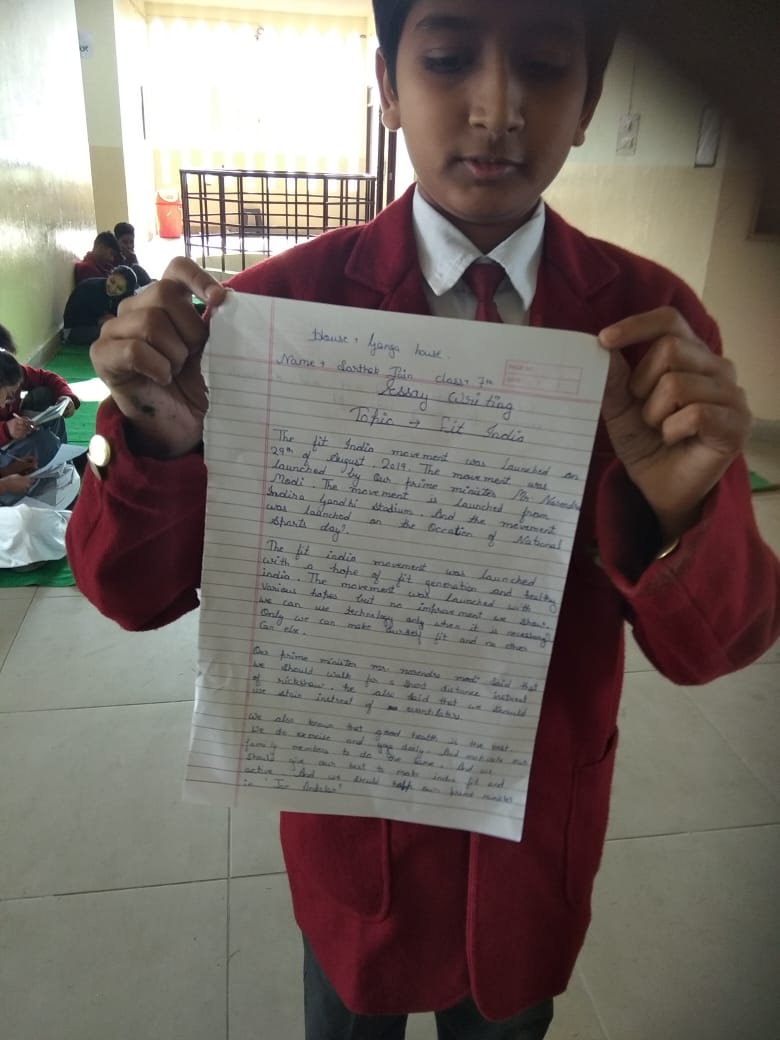 House → Ganga house.
Name → Sarthak Jain class → 7th
Essay Writing
Topic → Fit India
The fit India movement was launched on
29th of August. 2019. The movement was
launched by Our prime minister Mr. Narendra
Modi. The movement is launched from
Indira Gandhi Stadium. And the movement
was launched on the Occation of National
sports day.
The fit india movement was launched
with a hope of fit generation and healthy
india. The movement was launched with
various hopes but no improvement we show.
we can use technology only when it is necessary
Only we can make ourself fit and no other
can else.
Our prime minister mr. narendra modi said that
we should walk for a short distance instreat
of rickshaw. he also said that we should
use stair instreat of
We also known that good health is the best.
We do exercise and yoga daily. And motivate our
family members to do the same. And we
should give our best to make india fit and
active. And we should our prime minister
in